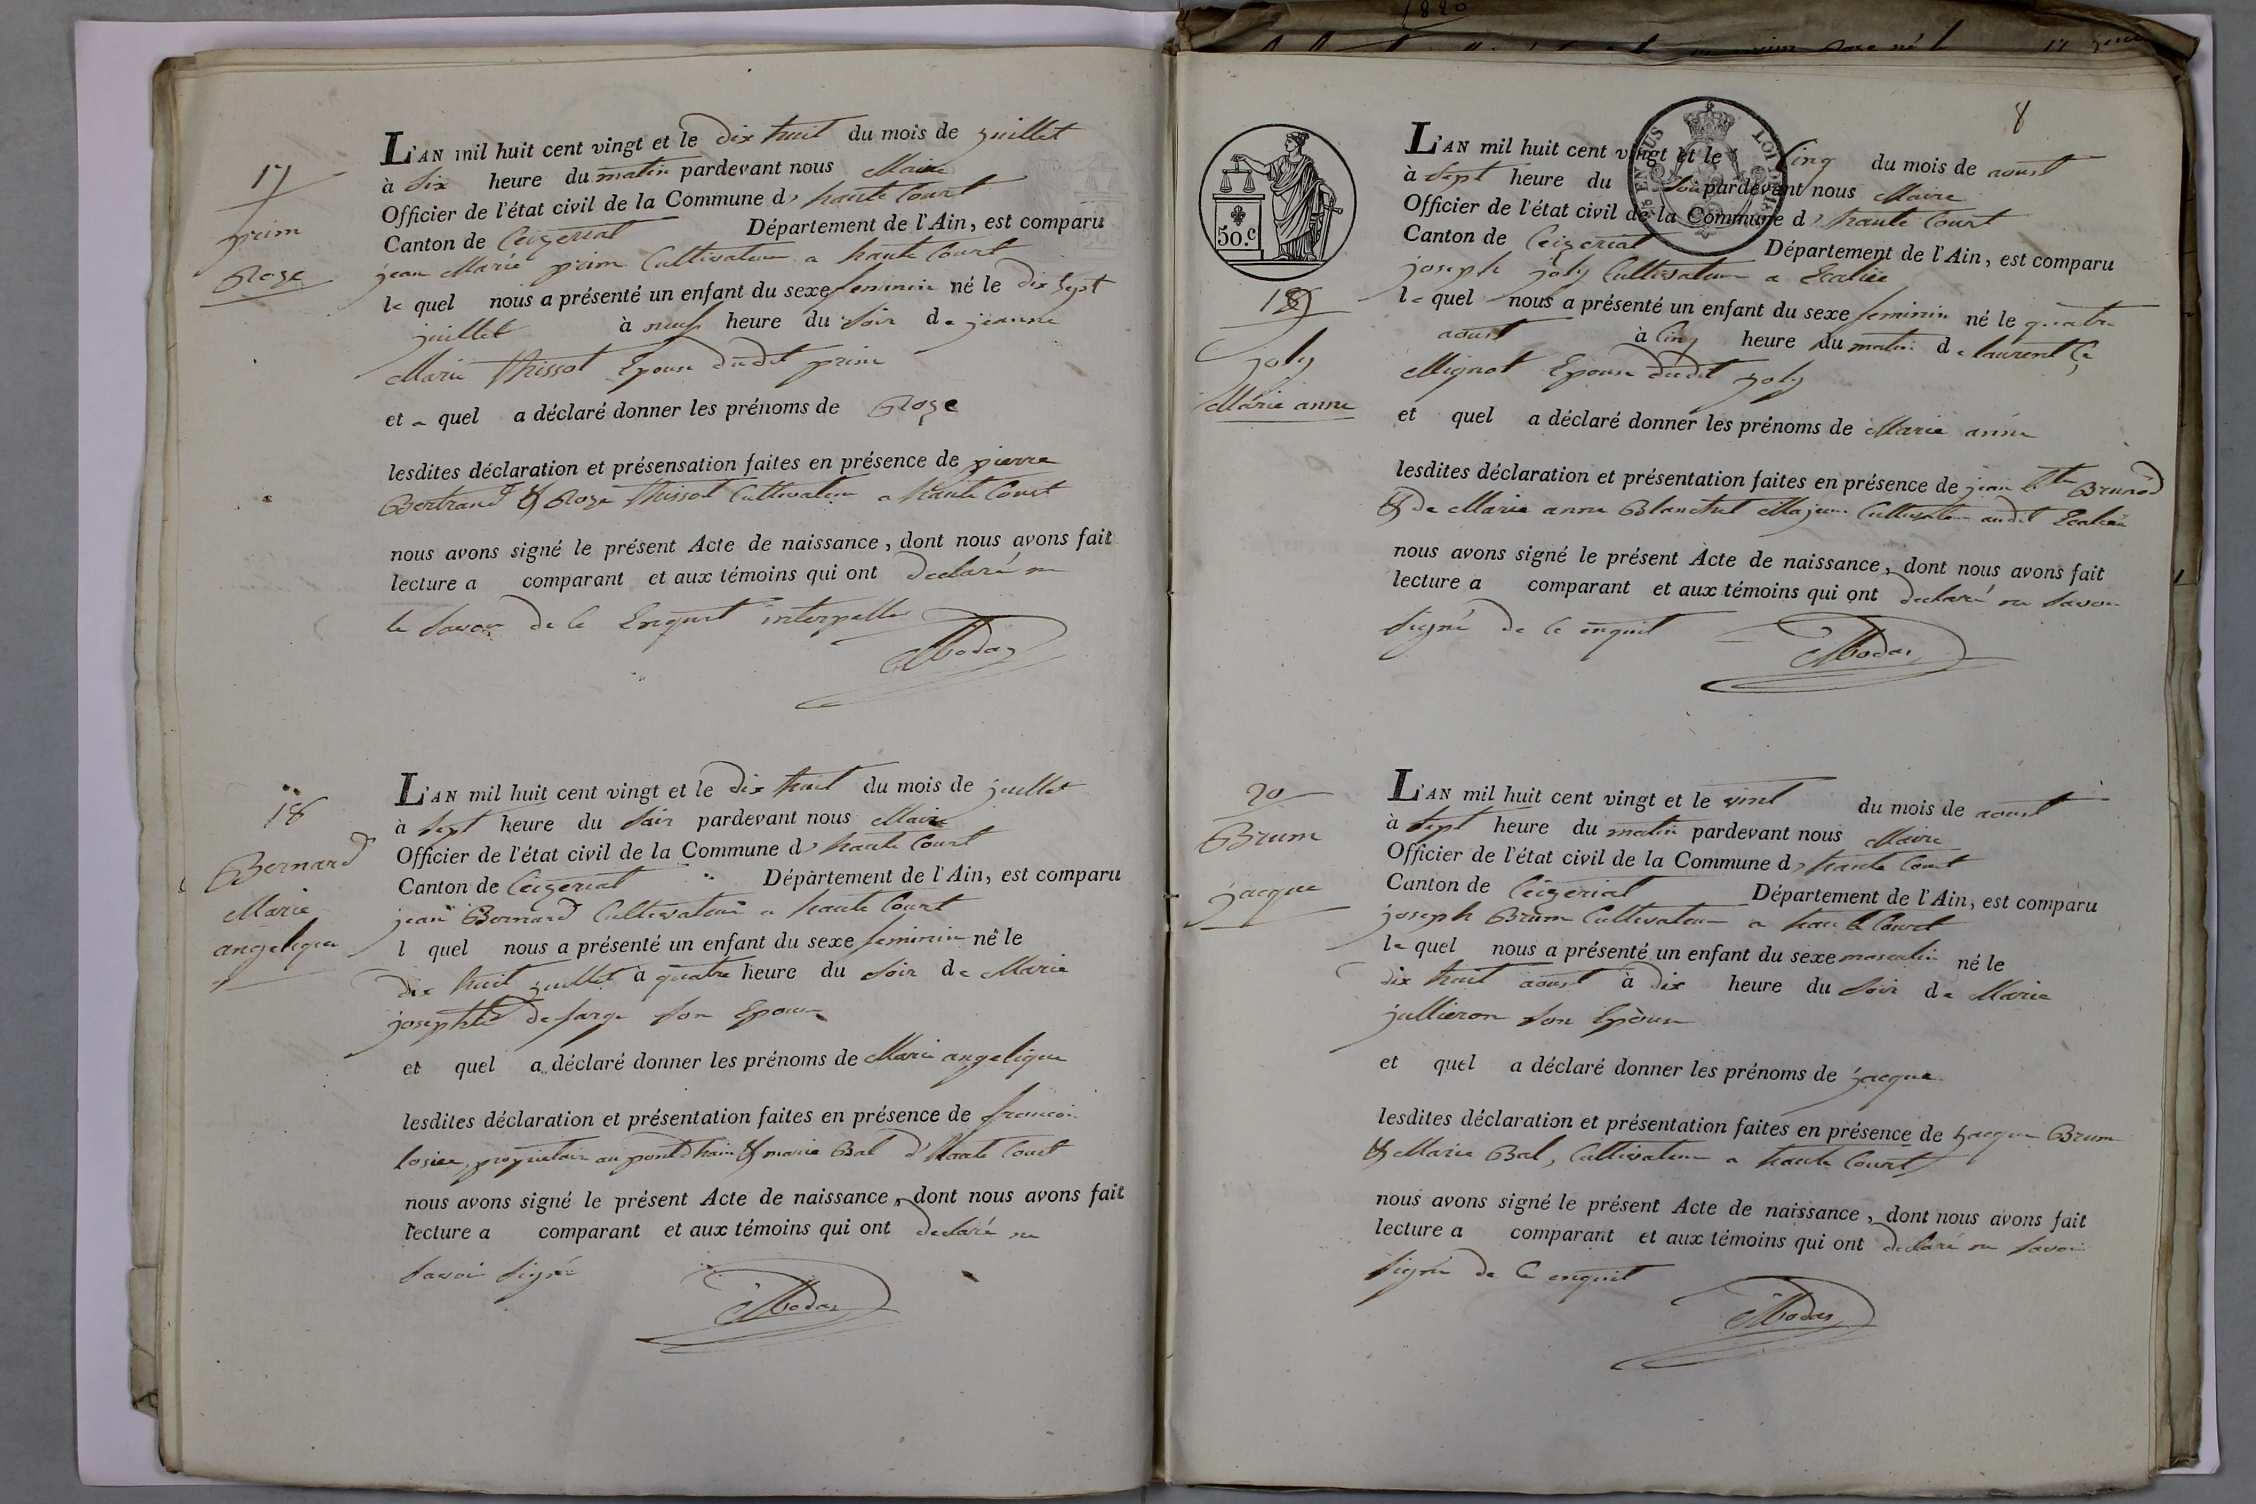 17
prim
Roze
L'AN mil huit cent vingt et le dix huit du mois de juillet
à dix heure du matin pardevant nous Maire
Officier de l'état civil de la Commune d, haute Court
Canton de Ceizeriat Département de l'Ain, est comparu
jean Marie prim Cultivateur a haute Court
le quel nous a présenté un enfant du sexe feminin né le dix sept
juillet à neuf heure du soir de jeanne
Marie thissot Epouse dudit prim
et quel a déclaré donner les prénoms de Roze
lesdites déclaration et présensation faites en présence de pierre
Bertrand & Roze thissot Cultivateur a haute Court
nous avons signé le présent Acte de naissance, dont nous avons fait
lecture a comparant et aux témoins qui ont declaré ne
le savoir de ce Enquit interpellé
18
Bernard
Marie
angelique
L'AN mil huit cent vingt et le dix huit du mois de juillet
à sept heure du soir pardevant nous Maire
Officier de l'état civil de la Commune d, haute Court
Canton de Ceizeriat Département de l'Ain, est comparu
jean Bernard Cultivateur a haute Court
l quel nous a présenté un enfant du sexe feminin né le
dix huit juillet à quatre heure du soir de Marie
josephte defarge son Epouse
et quel a déclaré donner les prénoms de Marie angelique
lesdites déclaration et présentation faites en présence de francois
losier, proprietaire au pont dhain & marie Bal d'haute Court
nous avons signé le présent Acte de naissance, dont nous avons fait
lecture a comparant et aux témoins qui ont declaré ne
savoir signé
1820
8
50.c
19
joly
Marie anne
L'AN mil huit cent vingt et le Cinq du mois de aoust
à sept heure du soir pardevant nous Maire
Officier de l'état civil de la Commune d, haute Court
Canton de Ceizeriat Département de l'Ain, est comparu
joseph joly Cultivateur a
le quel nous a présenté un enfant du sexe feminin né le quatre
aoust à Cinq heure du matin de laurence
Mignot Epouse dudit joly
et quel a déclaré donner les prénoms de Marie anne
lesdites déclaration et présentation faites en présence de jean Bte Brunod
& de Marie anne Blanchet Majeur Cultivateur audit
nous avons signé le présent Acte de naissance, dont nous avons fait
lecture a comparant et aux témoins qui ont declaré ne savoir
signé de ce enquit
20
Brum
jacque
L'AN mil huit cent vingt et le vint du mois de aoust
à sept heure du matin pardevant nous Maire
Officier de l'état civil de la Commune d, haute Court
Canton de Ceizeriat Département de l'Ain, est comparu
joseph Brum Cultivateur a haute Court
le quel nous a présenté un enfant du sexe masculin né le
dix huit aoust à dix heure du soir de Marie
jullieron son Epouse
et quel a déclaré donner les prénoms de jacque
lesdites déclaration et présentation faites en présence de jacque Brum
& Marie Bal, Cultivateur a haute Court
nous avons signé le présent Acte de naissance, dont nous avons fait
lecture a comparant et aux témoins qui ont declaré ne savoir
signé de ce enquit